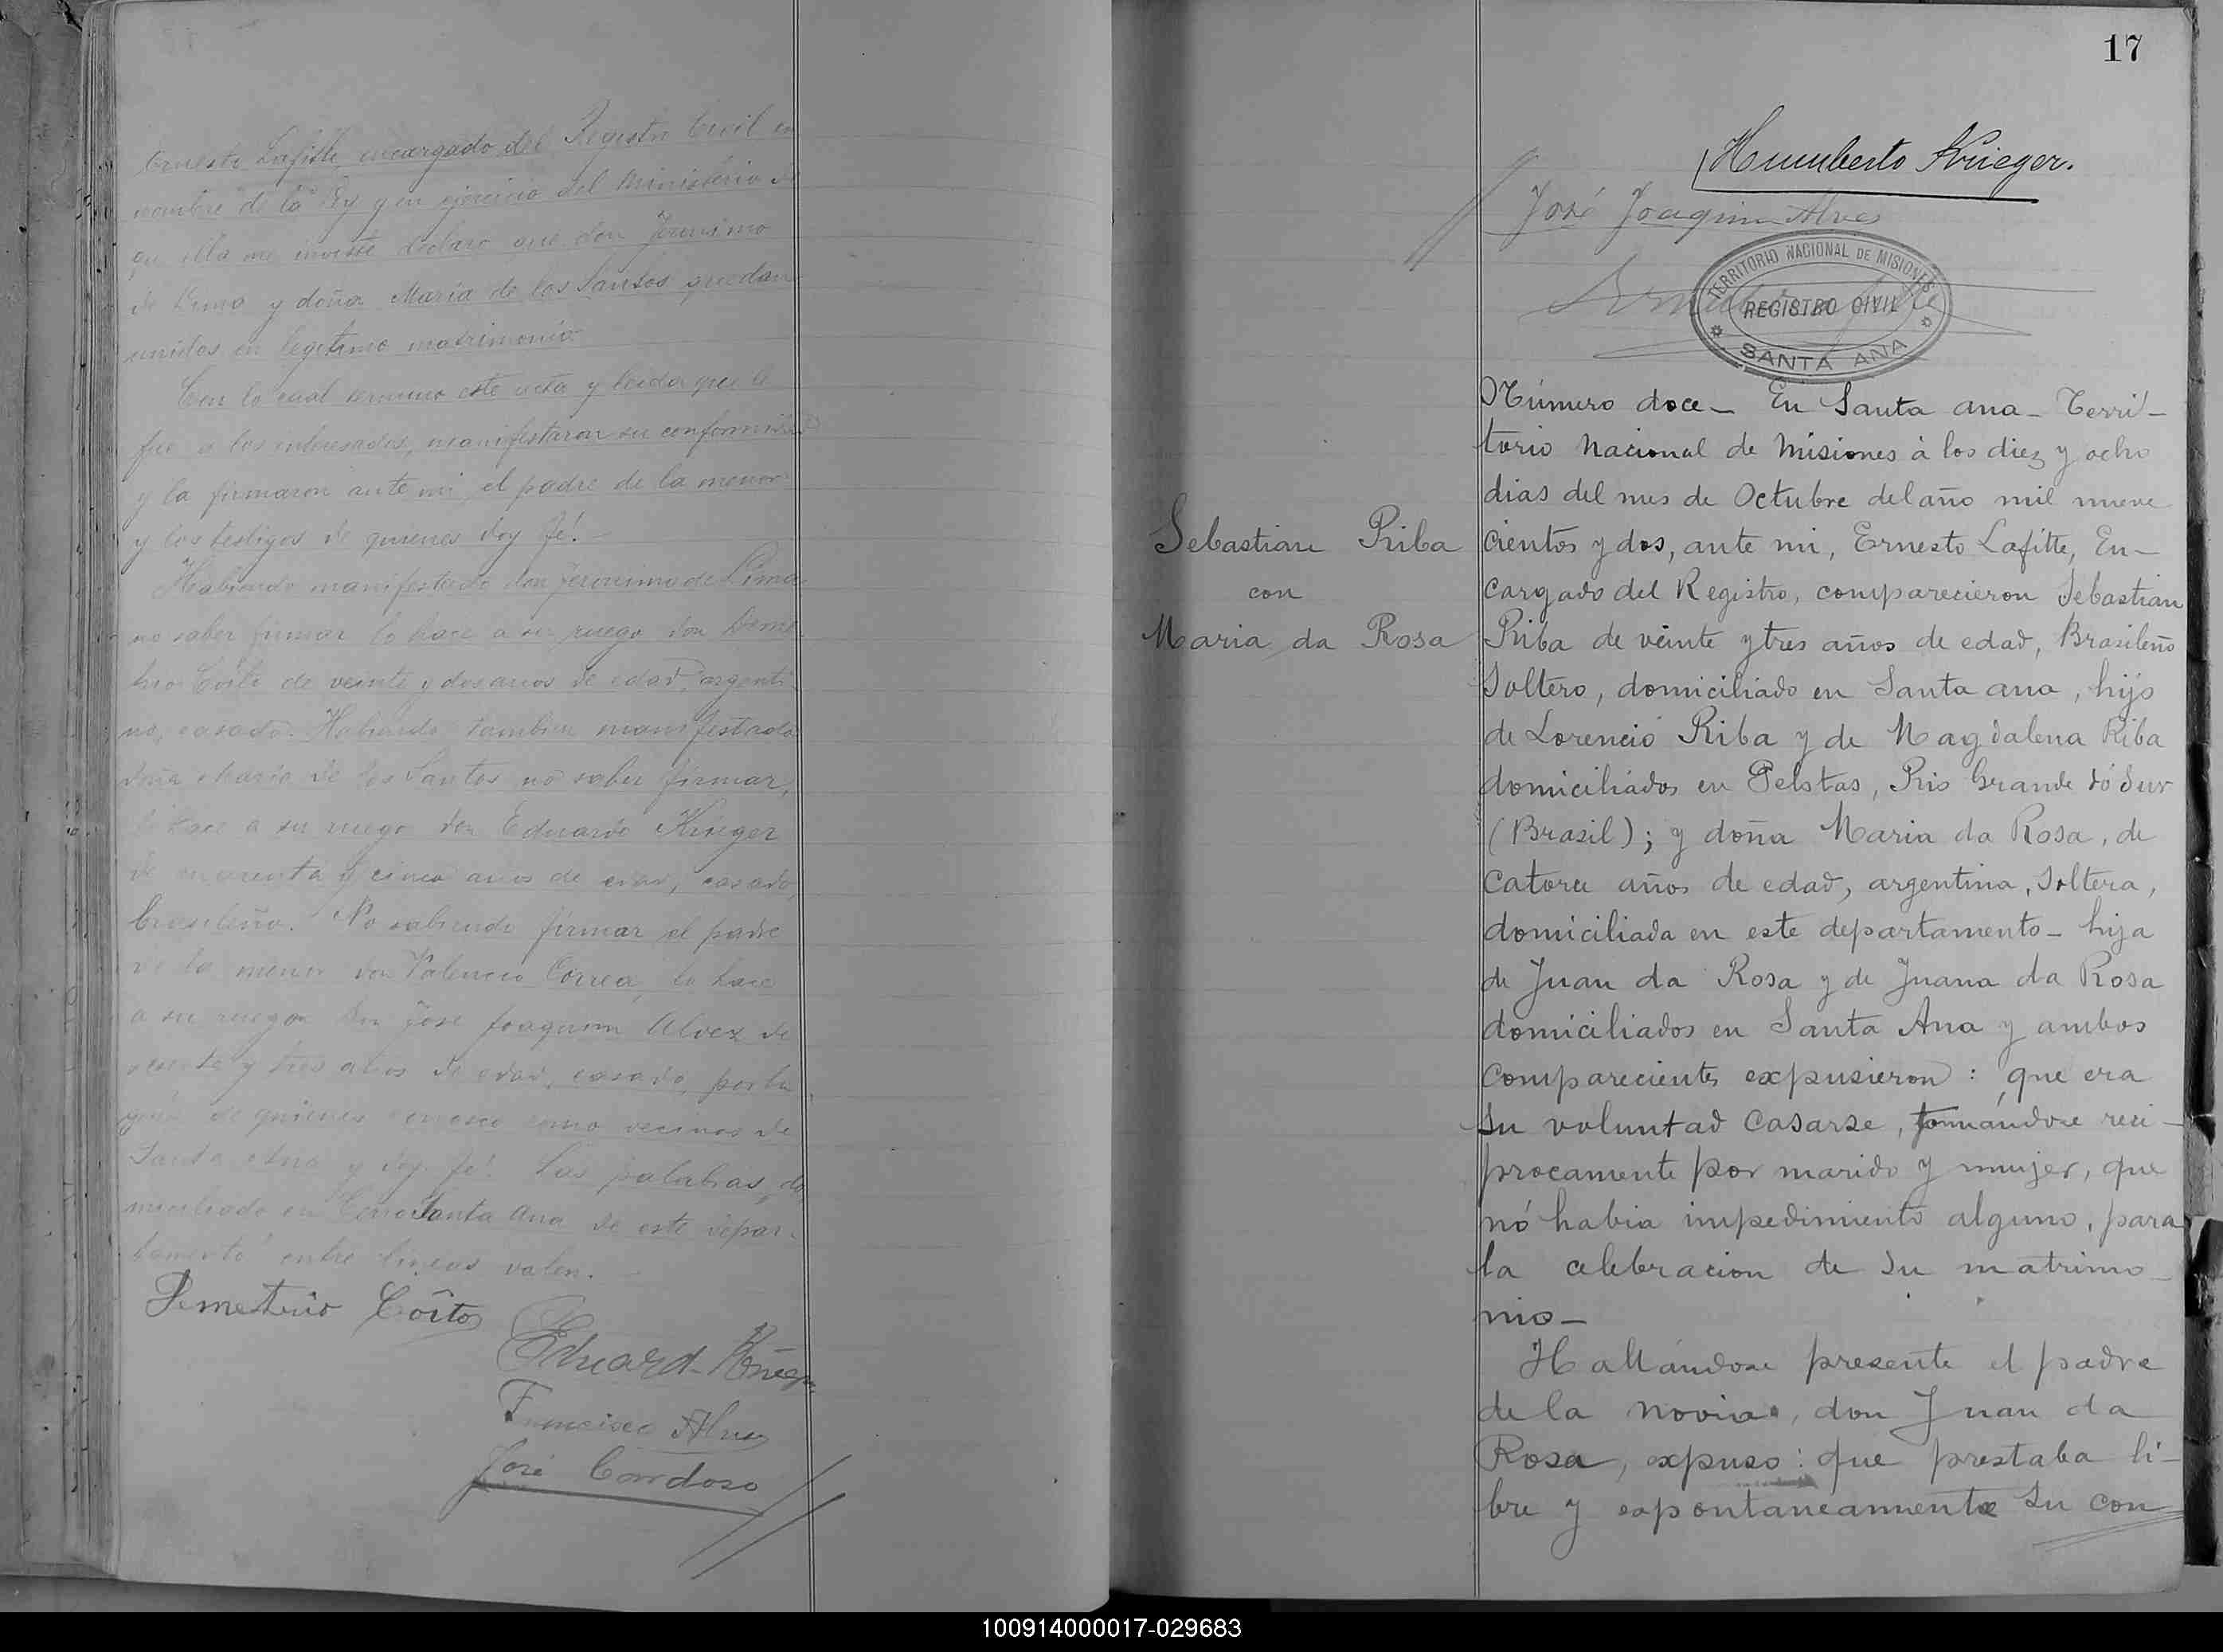 Ernesto Lafitte, encargado del Registro Civil en
nombre de la Ley y en ejercicio del ministerio de
que ella me inviste declaro que don Jeronimo
de Lima y doña Maria de los Santos quedan
unidos en legitimo matrimonio
Con lo cual termino este acta y leida que le
fue a los interesados, manifestaron su conformidad
y la firmaron ante mi, el padre de la menor
y los testigos de quienes doy fé! -
Habiendo manifestado don Jeronimo de Lima
no saber firmar lo hace a su ruego don Deme
trio Coito de veinte y dos años de edad, argenti
no, casado. Habiendo tambien manifestado
doña Maria de los Santos no saber firmar,
lo hace a su ruego don Eduardo Krieger
de cuarenta y cinco años de edad, casado,
brasileño. No sabiendo firmar el padre
de la menor don Valencio Correa, lo hace
a su ruego don José Joaquim Alvez de
y tres años de edad, casado, portu
gués de quienes conosco como vecinos de
Santa Ana y doy fé! Las palabras, do
miciliado en Cerro Santa Ana de este depar-
tamento" entre lineas valen.
Demetrio Coîto
Eduard Krieger
Francisco Alves
José Cardoso
17
Humberto Krieger.
José Joaquim Alves
TERRITORIO NACIONAL DE MISIONES
REGISTRO CIVIL
SANTA ANA
Número doce _ En Santa ana _ Terri-
torio Nacional de Misiones à los diez y ocho
dias del mes de Octubre del año mil nueve
cientos y dos, ante mi, Ernesto Lafitte, En-
cargado del Registro, comparecieron Sebastian
Riba de veinte y tres años de edad, Brasileño
Soltero, domiciliado en Santa ana, hijo
de Lorencio Riba y de Magdalena Riba
domiciliados en Pelotas, Rio Grande dó Sur
(Brasil); y doña Maria da Rosa, de
Catorce años de edad, argentina, Soltera,
domiciliada en este departamento _ hija
de Juan da Rosa y de Juana da Rosa
domiciliados en Santa Ana y ambos
Comparecientes expusieron: que era
Su voluntad Casarse, tomándose reci-
procamente por marido y mujer, que
nó habia impedimiento alguno, para
la celebracion de Su matrimo-
nio _
Hallandose presente el padre
de la novia, don Juan da
Rosa, expuso: que prestaba li-
bre y espontaneamente Su con
Sebastian Riba
con
Maria da Rosa
100914000017-029683